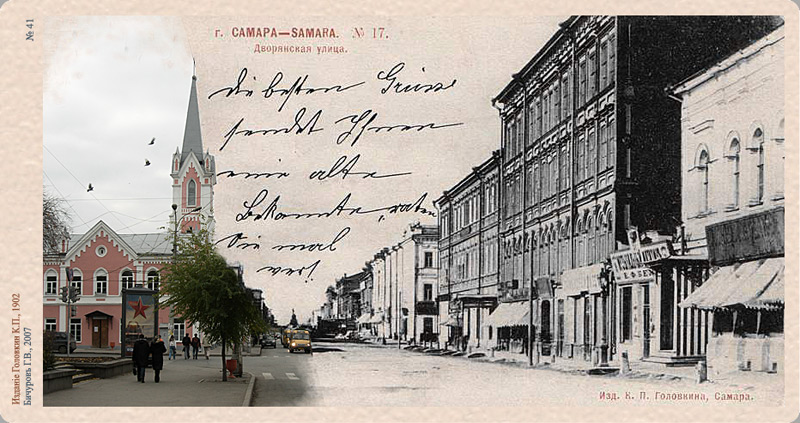 № 41
г. САМАРА—SAMARA. № 17.
Дворянская улица.
die besten Grüsse
sendet Ihnen
eine alte
Bekannte, raten
Sie mal
wer!
Изданіе Головкин К.П., 1902
Бичуровъ Г.В., 2007
Изд. К. П. Головкина, Самара.